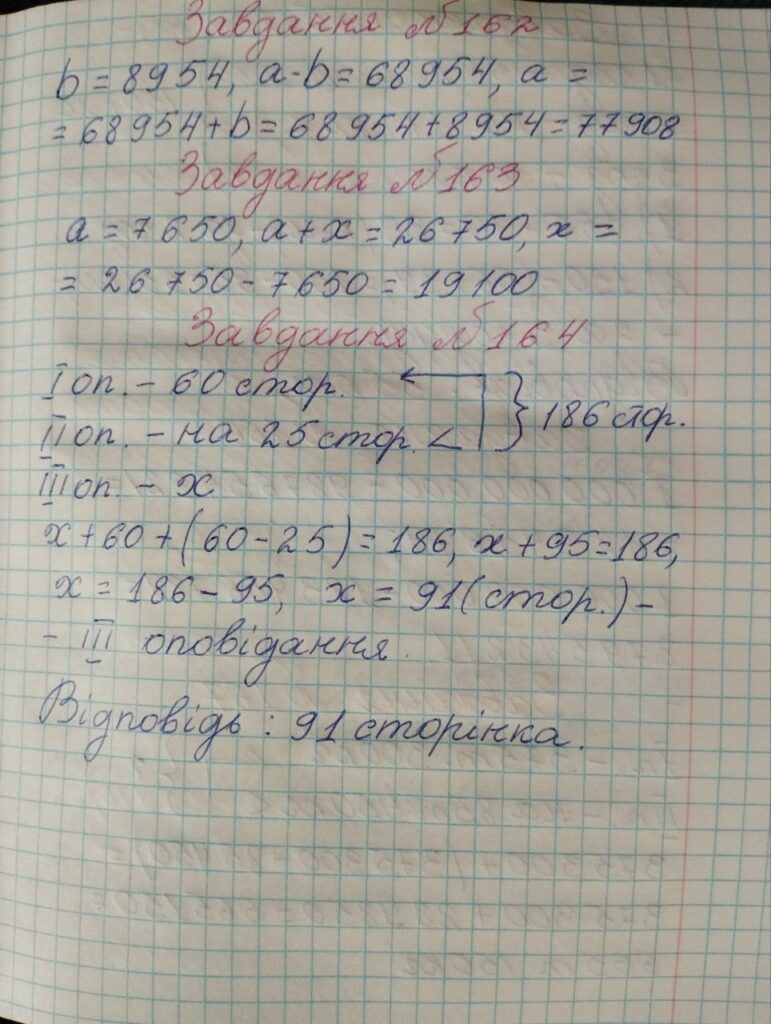 Завдання №162
b = 8954, a - b = 68954, a =
= 68954 + b = 68954 + 8954 = 77908
Завдання №163
a = 7650, a + x = 26750, x =
= 26750 - 7650 = 19100
Завдання №164
I оп. - 60 стор.
II оп. - на 25 стор. < } 186 стор.
III оп. - x
x + 60 + (60 - 25) = 186, x + 95 = 186,
x = 186 - 95, x = 91 (стор.) -
- III оповідання.
Відповідь : 91 сторінка.